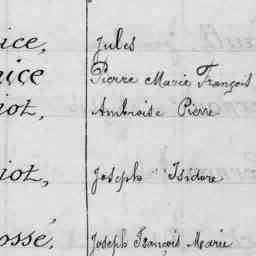 ice, Jules
rice Pierre Marie François
iot, Ambroise Pierre
iot, Joseph Isidore
osse, Joseph François Marie